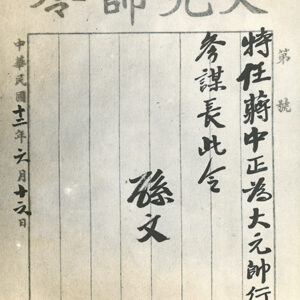 大元帥令
第 號
特任蔣中正為大元帥行
參謀長此令
孫文
中華民國十二年六月十六日